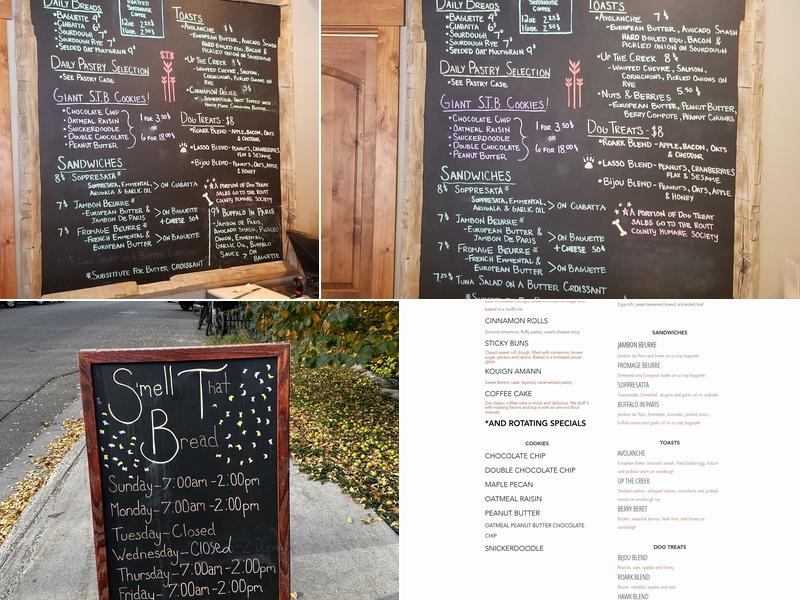 DAILY BREADS
•BAGUETTE 4$
•CIABATTA 6$
•SOURDOUGH 7$
•SOURDOUGH RYE 7$
•SEEDED OAT MULTIGRAIN 9$
ROASTED
SEEDHOUSE
COFFEE
12oz 2.25$
16oz 2.50$
DAILY PASTRY SELECTION
-SEE PASTRY CASE.
STB
GIANT S.T.B COOKIES!
•CHOCOLATE CHIP
•OATMEAL RAISIN
•SNICKERDOODLE
•DOUBLE CHOCOLATE
•PEANUT BUTTER
1 FOR 3.50$
OR
6 FOR 18.00$
SANDWICHES
8$ SOPPRESATA
SOPPRESATA, EMMENTAL,
ARUGALA & GARLIC OIL > ON CIABATTA
7$ JAMBON BEURRE
-EUROPEAN BUTTER &
JAMBON DE PARIS > ON BAGUETTE
+ CHEESE 50¢
7$ FROMAGE BEURRE
-FRENCH EMMENTAL &
EUROPEAN BUTTER > ON BAGUETTE
*SUBSTITUTE FOR BUTTER CROISSANT
TOASTS
•AVOLANCHE 7$
-EUROPEAN BUTTER, AVOCADO SMASH
HARD BOILED EGG, BACON &
PICKLED ONION ON SOURDOUGH
•UP THE CREEK 8$
-WHIPPED CHEVRE, SALMON,
CORNICHONS, PICKLED ONIONS ON
RYE
•CINNAMON DELICE 5$
DOG TREATS - $8
•ROARK BLEND - APPLE, BACON, OATS
& CHEDDAR
•LASSO BLEND - PEANUTS, CRANBERRIES
FLAX & SESAME
•BIJOU BLEND - PEANUTS, OATS, APPLE
& HONEY
A PORTION OF DOG TREAT
SALES GO TO THE ROUTT
COUNTY HUMANE SOCIETY
9$ BUFFALO IN PARIS
-JAMBON DE PARIS,
AVOCADO SMASH, PICKLED
ONION, EMMENTAL,
GARLIC OIL, BUFFALO
SAUCE > ON
BAGUETTE
DAILY BREADS
•BAGUETTE 4$
•CIABATTA 6$
•SOURDOUGH 7$
•SOURDOUGH RYE 7$
•SEEDED OAT MULTIGRAIN 9$
SEEDHOUSE
COFFEE
12oz 2.25$
16oz 2.50$
DAILY PASTRY SELECTION
-SEE PASTRY CASE.
GIANT S.T.B COOKIES!
•CHOCOLATE CHIP
•OATMEAL RAISIN
•SNICKERDOODLE
•DOUBLE CHOCOLATE
•PEANUT BUTTER
1 FOR 3.50$
OR
6 FOR 18.00$
SANDWICHES
8$ SOPPRESATA
SOPPRESATA, EMMENTAL,
ARUGALA & GARLIC OIL > ON CIABATTA
7$ JAMBON BEURRE
-EUROPEAN BUTTER &
JAMBON DE PARIS > ON BAGUETTE
+ CHEESE 50¢
7$ FROMAGE BEURRE
-FRENCH EMMENTAL &
EUROPEAN BUTTER > ON BAGUETTE
7.25$ TUNA SALAD ON A BUTTER CROISSANT
TOASTS
•AVOLANCHE 7$
-EUROPEAN BUTTER, AVOCADO SMASH
HARD BOILED EGG, BACON &
PICKLED ONION ON SOURDOUGH
•UP THE CREEK 8$
-WHIPPED CHEVRE, SALMON,
CORNICHONS, PICKLED ONIONS ON
RYE
•NUTS & BERRIES 5.50$
-EUROPEAN BUTTER, PEANUT BUTTER,
BERRY COMPOTE, PEANUT CHUNKS
DOG TREATS - $8
•ROARK BLEND - APPLE, BACON, OATS
& CHEDDAR
•LASSO BLEND - PEANUTS, CRANBERRIES
FLAX & SESAME
•BIJOU BLEND - PEANUTS, OATS, APPLE
& HONEY
A PORTION OF DOG TREAT
SALES GO TO THE ROUTT
COUNTY HUMANE SOCIETY
Smell That
Bread
Sunday-7:00am-2:00pm
Monday-7:00am-2:00pm
Tuesday-Closed
Wednesday-Closed
Thursday-7:00am-2:00pm
Friday-7:00am-2:00pm
baked in a muffin tin
CINNAMON ROLLS
Ground cinnamon, fluffy pastry, cream cheese icing
STICKY BUNS
Classic sweet roll dough, filled with cinnamon, brown
sugar, pecans and raisins. Baked in a honeyed pecan
glaze.
KOUIGN AMANN
Sweet Breton cake: layered, caramelized pastry
COFFEE CAKE
Our classic coffee cake is moist and delicious. We stuff it
with rotating flavors and top it with an almond flour
streusel.
*AND ROTATING SPECIALS
COOKIES
CHOCOLATE CHIP
DOUBLE CHOCOLATE CHIP
MAPLE PECAN
OATMEAL RAISIN
PEANUT BUTTER
OATMEAL PEANUT BUTTER CHOCOLATE
CHIP
SNICKERDOODLE
Egg-rich, yeast-leavened bread, a braided loaf
SANDWICHES
JAMBON BEURRE
Jambon de Paris and butter on a crisp baguette
FROMAGE BEURRE
Emmental and European butter on a crisp baguette
SOPPRESATTA
Soppressatta, Emmental, arugula and garlic oil on ciabatta
BUFFALO IN PARIS
Jambon de Paris, Emmental, avocado, pickled onion,
buffalo sauce and garlic oil on a crisp baguette
TOASTS
AVOLANCHE
European butter, avocado smash, hard boiled egg, bacon
and pickled onion on sourdough
UP THE CREEK
Smoked salmon, whipped chevre, cornichons and pickled
onions on sourdough rye
BERRY BERET
Ricotta, seasonal berries, fresh mint, and honey on
sourdough
DOG TREATS
BIJOU BLEND
Peanuts, oats, apples and honey
ROARK BLEND
Bacon, cheddar, apples and oats
HAWK BLEND